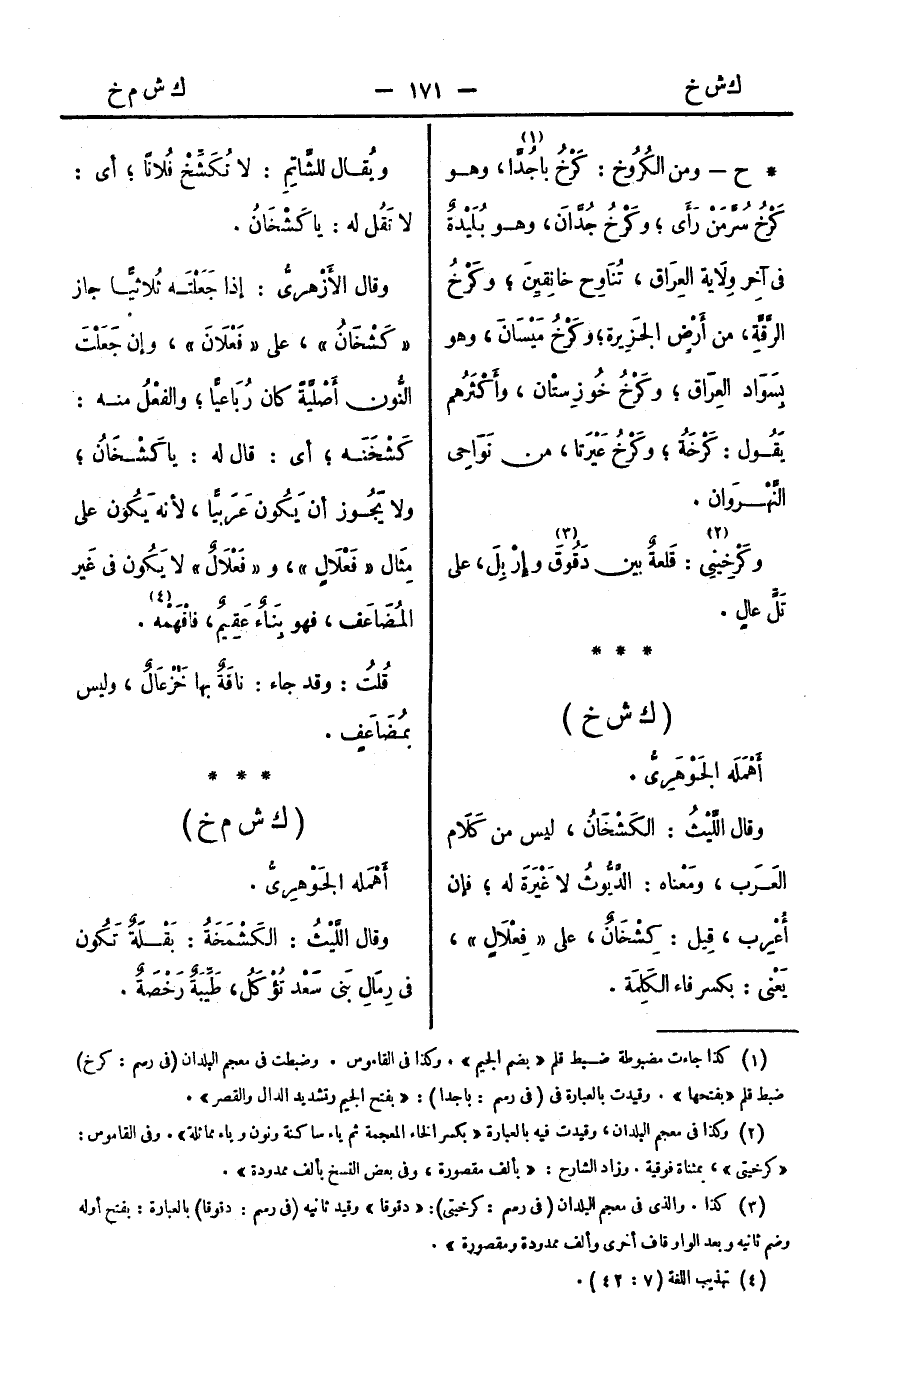 ك ش خ
— ١٧١ —
ك ش م خ
* ح — ومن الكُرُوخ : كَرْخُ باجُدَّا(١)، وهـو
كَرْخُ سُرَّمَنْ رَأَى ؛ وكَرْخُ جُدَّانَ، وهـو بُلَيْدةٌ
فى آخِر وِلاية العِرَاق ، تُنَاوِح خانِقِينَ ؛ وكَرْخُ
الرَّقَّةِ، من أَرْضِ الجَزِيرة؛وكَرْخُ مَيْسَانَ ، وهو
بِسَوَاد العِرَاق ؛ وكَرْخُ خُوزِستْان ، وأَكْثَرُهم
يَقُـول : كَرْخَةُ ؛ وكَرْخُ عَبَرْتا ، مـن نَوَاحِى
النَّهْـرَوان .
وكَرْخِينِى(٢) : قَلعةٌ بين دَقُوقَ(٣) وإِرْبِلَ، على
تَلٍّ عالٍ .
* * *
( ك ش خ )
أَهْمَلَه الجَوْهَرِىُّ .
وقال اللَّيْثُ : الكَشْخَانُ ، ليس من كَلَام
العَـرَب ، ومَعْناه : الدَّيُّوثُ لا غَيْرَةَ له ؛ فإن
أُعْرِب ، قِيل : كِشْخَانٌ ، على « فِعْلَالٍ » ،
يَعْنى : بكسر فاء الكَلِمَة .
ويُقـال للشَّاتِمِ : لا تُكَشِّخْ فُلانًا ؛ أى :
لا تَقُل له : ياكَشْخَانُ .
وقال الأَزْهرِىُّ : إذا جَعَلْتَـه ثُلاثِيًّـا جاز
« كَشْخَانُ » ، على « فَعْلَانَ » ، وإن جَعَلْتَ
النُّون أَصْلِيَّةً كان رُبَاعيًّا ؛ والفعْلُ منـه :
كَشْخَنَـه ؛ أى : قال له : ياكَشْـخَانُ ؛
ولا يَجُـوز أن يَكُون عَرَبِيًّا ، لأنه يَكُون على
مِثَال « فَعْلَالٍ » ، و « فَعْلَالٌ » لا يَكُون فى غَير
المُضَاعَف ، فهو بِنَاءٌ عَقِيمٌ، فافْهَمْه(٤) .
قُلتُ : وقد جاء : ناقَةٌ بها خَزْعَالٌ ، وليس
بمُضَاعَفٍ .
* * *
( ك ش م خ )
أَهْمَله الجَوْهرِىُّ .
وقال اللَّيْثُ : الكَشْمَخَةُ : بَقْـلَةٌ تَكُون
فى رِمَالِ بَنى سَعْد تُؤْكَلُ، طَيِّبَةٌ رَخْصَةٌ .
(١) كذا جاءت مضبوطة ضبط قلم « بضم الجيم » . وكذا فى القاموس . وضبطت فى معجم البلدان (فى رسم : كرخ)
ضبط قلم «بفتحها » . وقيدت بالعبارة فى (فى رسم : باجدا) : « بفتح الجيم وتشديد الدال والقصر » .
(٢) وكذا فى معجم البلدان، وقيدت فيه بالعبارة « بكسر الخاء المعجمة ثم ياء ساكنة ونون وياء ممالة» . وفى القاموس :
« كرخيتى » ، بمثناة فوقية . وزاد الشارح : « بألف مقصورة ، وفى بعض النسخ بألف ممدودة » .
(٣) كذا . والذى فى معجم البلدان (فى رسم : كرخيتى): « دقوقا » وقيد ثانيه (فى رسم : دقوقا) بالعبارة : بفتح أوله
وضم ثانيه وبعد الواو قاف أخرى وألف ممدودة ومقصورة » .
(٤) تهذيب اللغة (٧ : ٤٢) .